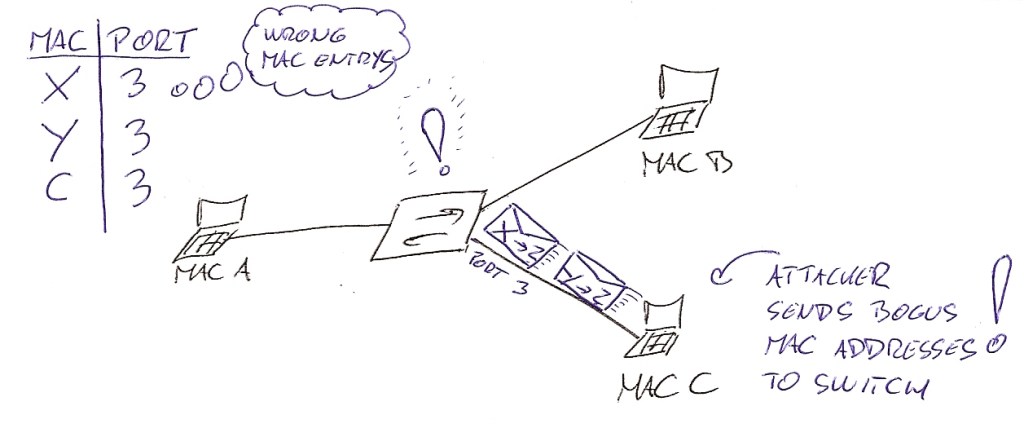 MAC PORT
X 3
Y 3
C 3
WRONG
MAC ENTRYS
!
MAC B
MAC A
X→Z
Y→Z
PORT 3
MAC C
ATTACKER
SENDS BOGUS
MAC ADDRESSES
TO SWITCH
!